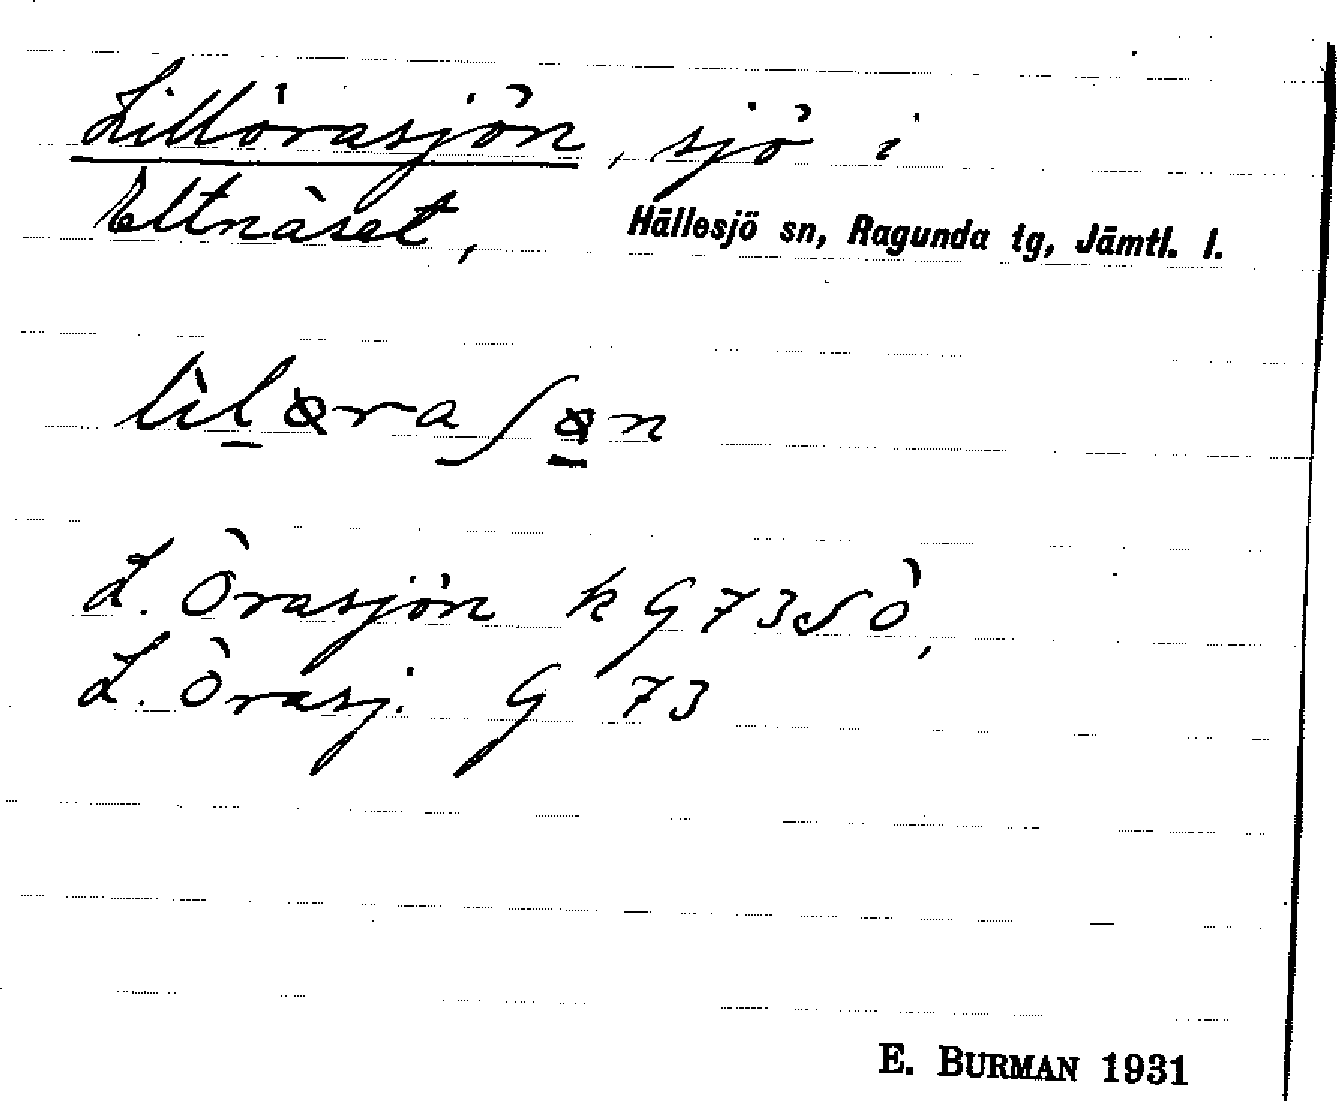 Lillörasjön, sjö i
Eltnäset, Hällesjö sn, Ragunda tg, Jämtl. l.
L. Örasjön k G 73 SÖ,
L. Örasj. G 73
E. BURMAN 1931